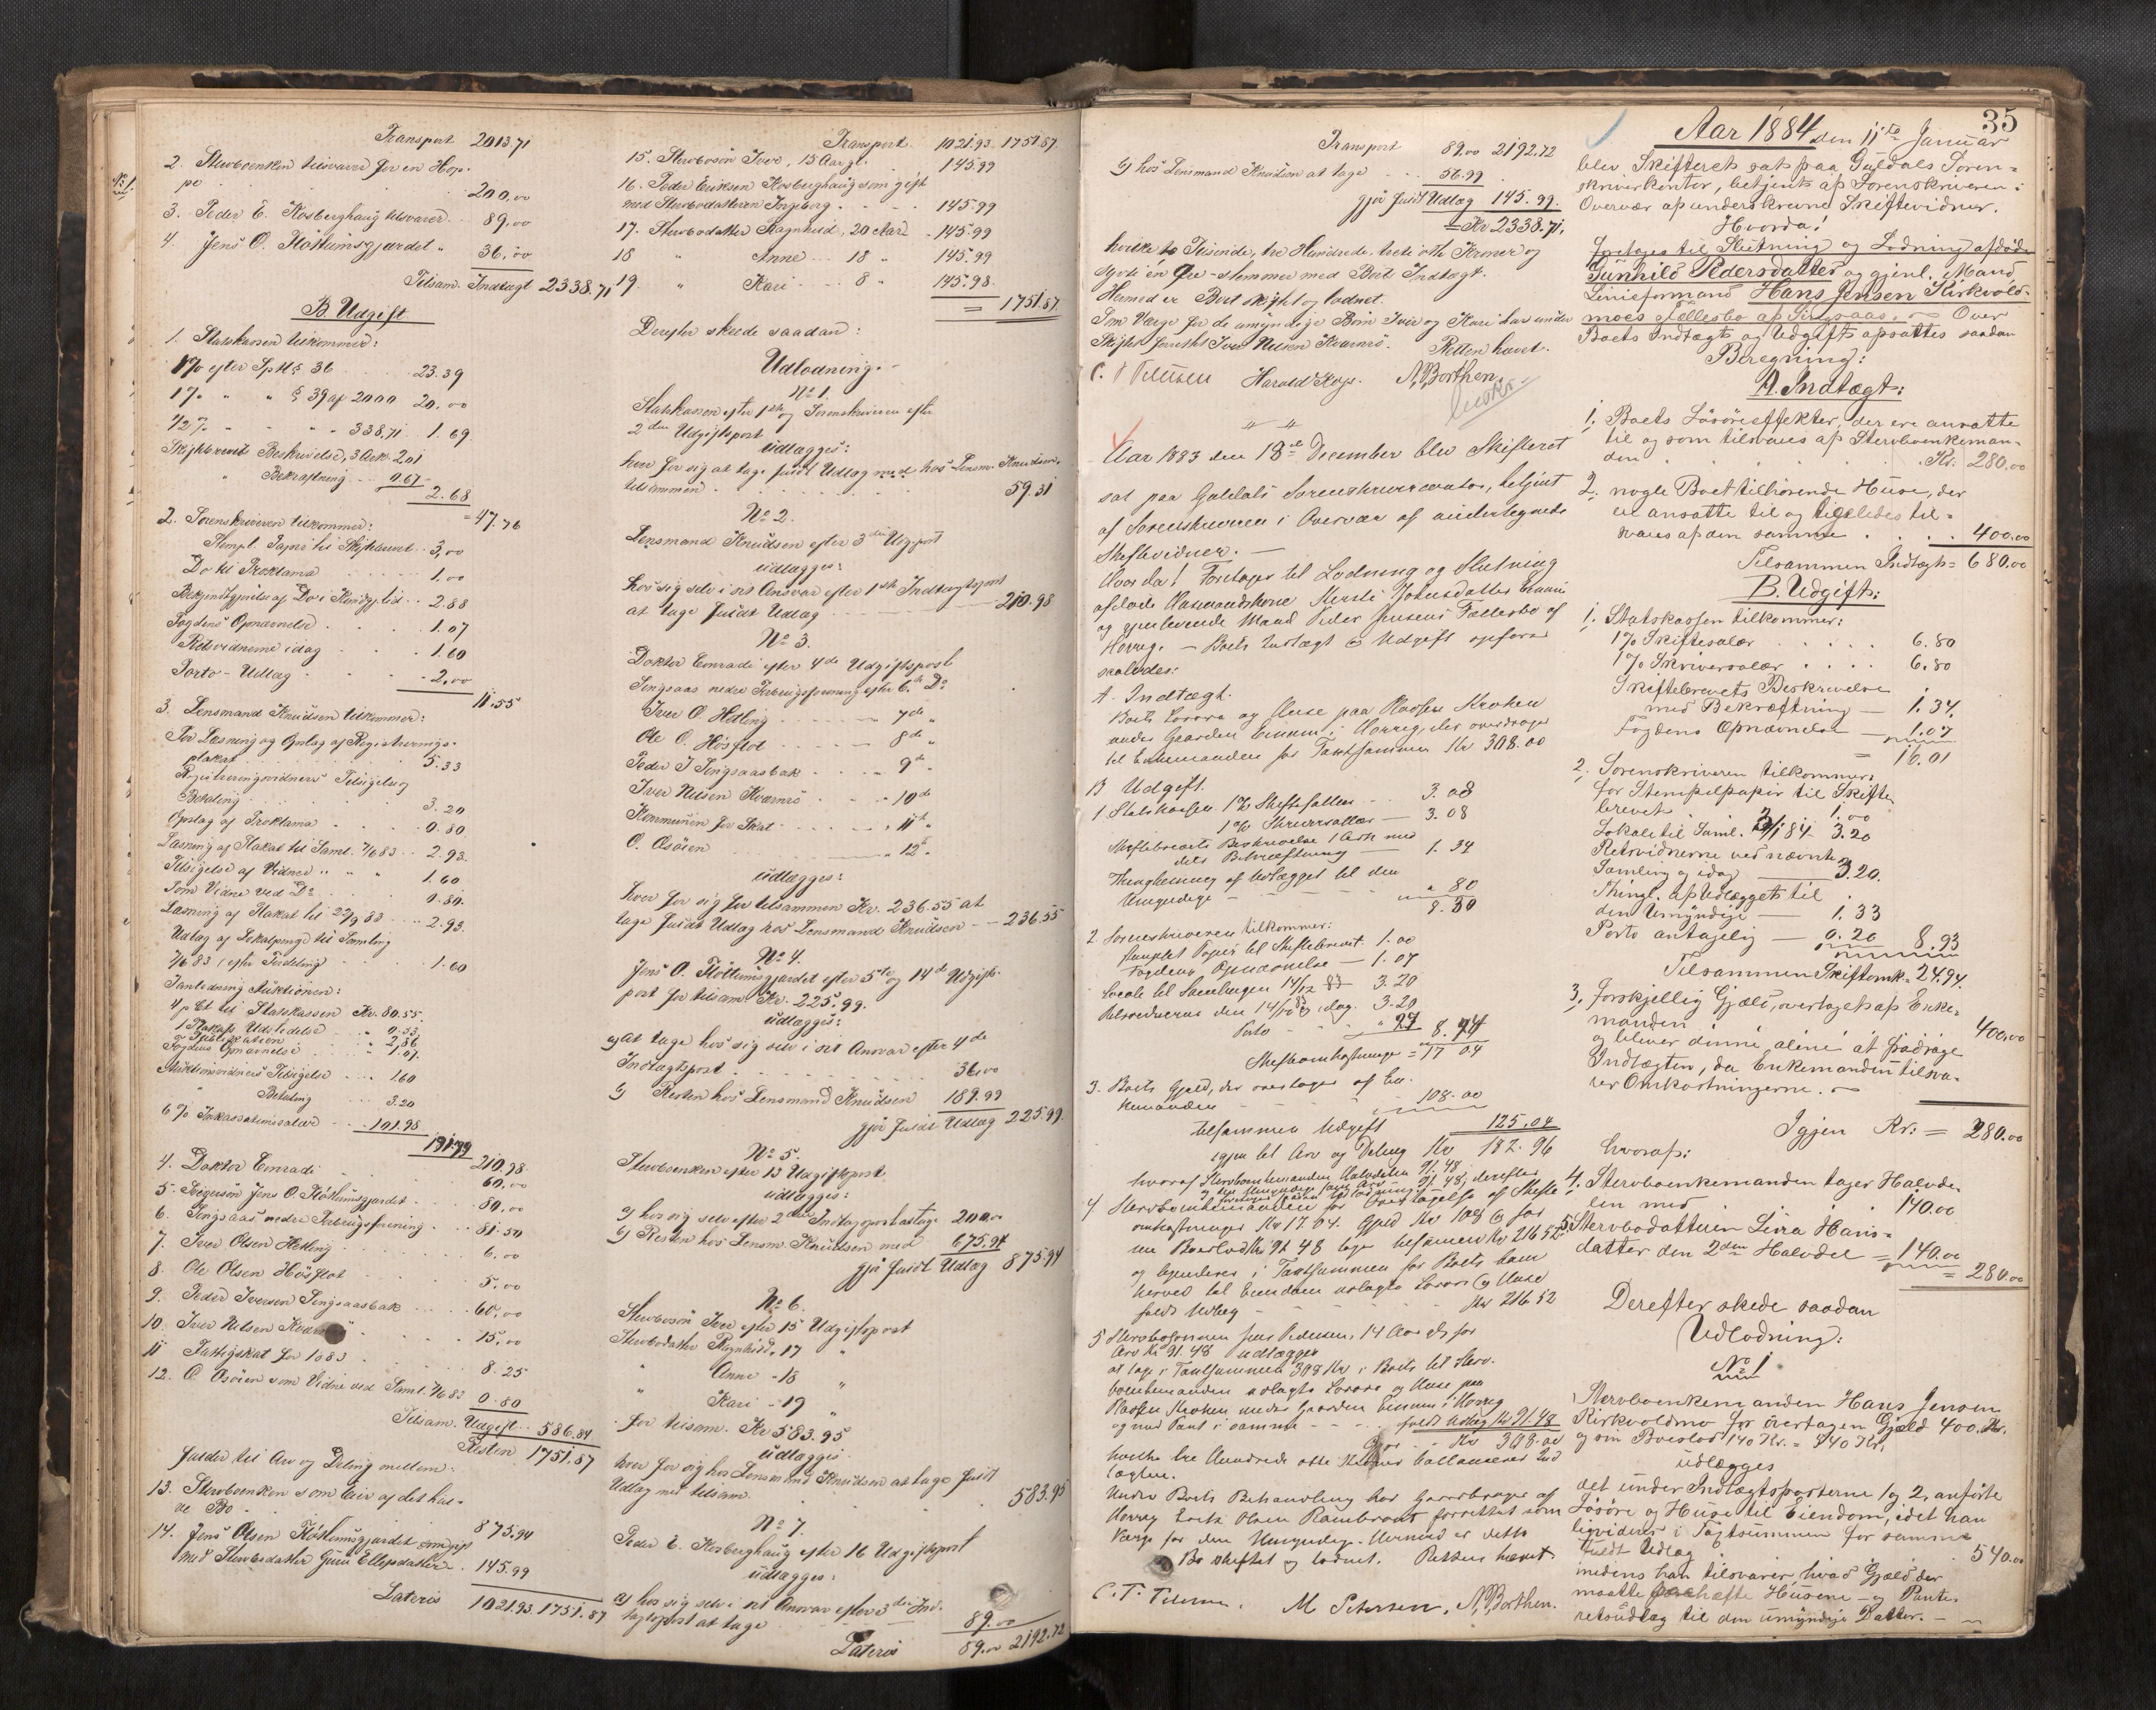 Transport 2013.71
2. Sterboenken tilsvarer for en Hop-
pe 200,00
3. Peder E. Kosberghaug tilsvarer 89,00
4. Jens O. Flöttumsgjærdet " 36,00
Tilsam. Indtægt 2338.71
B. Udgift
1. Statskassen tilkommer:
1% efter Sptl § 36 23.39
1% " " § 39 af 2000 20,00
1/2% " " " 338,71 1.69
Skiftebrevets Beskrivelse, 3 Ark 2.01
" Bekræftning 0.67
2.68
= 47.76
2. Sorenskriveren tilkommer:
Stempl. Papir til Skiftebrevet 3,00
Do til Proklama 1.00
Bekjendtgjørelse af Do i Kundgj.tid. 2.88
Fogdens Opnævnelse 1.07
Retsvidnerne idag 1.60
Porto-Udlæg 2,00
11.55
3. Lensmand Knudsen tilkommer:
For Læsning og Opslag af Registrerings-
plakat 5.33
Registreringsvidners Tilsigelse og
Betaling 3.20
Opslag af Proklama 0.80
Læsning af Plakat til Saml. 7/6 83 2.93.
Tilsigelse af Vidner " " " 1.60
Som Vidne ved Do 0.80.
Læsning af Plakat til 27/9 83 2.93.
Udlæg af Lokalpenge til Samling
7/6 83 (efter Fordeling) 1.60
Janledning Auktionen:
4 pCt til Statskassen Kr. 80.55.
1 Plakats Udstedelse " 0.53
og Publikation " 2,86
Fogdens Opnævnelse " 1.07.
Auktionsvidners Tilsigelse 1.60
" Betaling 3.20
6% Inkassationssalær 101.98
191.79
210.98
4. Doktor Conradi 60,00
5. Svigersön Jens O. Flöttumsgjærdet 80,00
6. Singsaas nedre Forbrugsforening 81.50
7. Iver Olsen Hetling 6,00
8. Ole Olsen Hösflot 5,00
9. Peder Iversen Singsaasbak 60,00
10. Iver Nilsen Kværnö 15,00
11 Fattigskat for 1883 8.25
12. O. Osöien som Vidne ved Saml. 7/6 83 0.80
Tilsam. Udgift 586.84
Resten 1751.87
falder til Arv og Deling mellem:
13. Sterboenken som Eier af det hal-
ve Bo 875.94
14. Jens Olsen Flöttumsgjærdet som gift
med Sterbodatter Guru Ellefsdatter 145.99
Lateris 1021.93 1751.87
Transport 1021.93 1751.87
15. Sterbosön Iver, 15 Aar gl. 145.99
16. Peder Eriksen Kosberghaug som gift
med Sterbodatteren Ingeborg 145.99
17. Sterbodatter Ragnhild, 20 Aar 145.99
18 " Anne 18 " 145.99
19. " Kari 8 " 145.98.
= 1751.87
Derefter skede saadan:
Udlodning.
No 1.
Statskassen efter 1ste og Sorenskriveren efter
2den Udgiftspost
udlægges:
hver for sig at tage fuldt Udlæg med hos Lensm. Knudsen
tilsammen 59.31
No 2.
Lensmand Knudsen efter 3die Udg.post
udlægges:
hos sig selv i sit Ansvar efter 1ste Indtægtspost
at tage fuldt Udlæg 210.98
No 3.
Doktor Conradi efter 4de Udgiftspost
Singsaas nedre Forbrugsforening efter 6te Do
Iver O. Hetling 7de "
Ole O. Hösflot 8de "
Peder I Singsaasbak 9de "
Iver Nilsen Kværnö 10de
Kommunen for Skat 11te "
O. Osöien 12te
udlægges:
hver for sig for tilsammen Kr. 236.55 at
tage fuldt Udlæg hos Lensmand Knudsen 236.55
No 4.
Jens O. Flöttumsgjærdet efter 5te og 14de Udgifts-
post for tilsam. Kr. 225.99.
udlægges:
a) at tage hos sig selv i sit Ansvar efter 4de
Indtægtspost 36,00
b) Resten hos Lensmand Knudsen 189.99
gjør fuldt Udlæg 225.99
No 5.
Sterboenken efter 13 Udgiftspost
udlægges:
a) hos sig selv efter 2den Indtægtspost at tage 200,00
b) Resten hos Lensm. Knudsen med 675.94
gjør fuldt Udlæg 875.94
No 6.
Sterbosön Iver efter 15 Udgiftspost
Sterbodatter Ragnhild " 17 "
" Anne " 18 "
" Kari " 19 "
for tilsam. Kr 583.95
udlægges
hver for sig hos Lensmand Knudsen at tage fuldt
Udlæg med tilsam. 583.95
No 7.
Peder E. Kosberghaug efter 16 Udgiftspost
udlægges:
a) hos sig selv i sit Ansvar efter 3die Ind-
tægtspost at tage 89.00
Lateris 89.00 2192.72
Transport 89.00 2192.72
b) hos Lensmand Knudsen at tage 56.99
gjør fuldt Udlæg 145.99.
= Kr 2338.71,
hvilke to Tusinde, tre Hundrede, treti otte Kroner og
syvti en Øre stemmer med Boets Indtægt.
Hermed er Boet skiftet og lodnet.
Som Værge for de umyndige Børn Iver og Kari har under
Skiftet forrettet Iver Nilsen Kværnö.
Retten hævet.
C. T. Petersen Harald Kops. N. Borthen.
Aar 1883 den 18de December blev Skifteret
sat paa Guldals Sorenskriverkontor, betjent
af Sorenskriveren i Overvær af undertegnede
Skiftevidner. —
Hvorda! Foretages til Lodning og Slutning
afdøde Husmandskone Kersti Johnsdatter Eenum
og gjenlevende Mand Peder Jensens Fællesbo af
Horrig. — Boets Indtægt og Udgift opføres
saaledes:
A. Indtægt.
Boets Løsøre og Huse paa Pladsen Kroken
under Gaarden Eenum i Horrig, der overdrages
til Enkemanden for Taxtsummen Kr 308.00
B Udgift.
1 Statskassen 1% Skiftesallær 3.08
1% Skriversallær 3.08
Skiftebrevets Beskrivelse 1 Ark med
dets Bekræftning 1.34
Thinglæsning af Udlægget til den
Umyndige " 80
8.30
2 Sorenskriveren tilkommer:
stemplet Papir til Skiftebrevet 1.00
Fogdens Opnævnelse 1.07
Locale til Samlingen 14/12 83 3.20
Retsvidnerne den 14/12 83 og idag. 3.20
Porto " 27 8.74
Skifteomkostninger = 17 04
3. Boets Gjæld, der overtages af En-
kemanden 108.00
tilsammen Udgift 125.04
igjen til Arv og Deling Kr 182.96
hvoraf Sterboenkemanden Halvdelen 91.48
og den Umyndige som Arv 91.48, derefter
4 Sterboenkemanden for Overtagelse af Skifte
omkostninger Kr 17.04. Gjæld Kr 108 og for
sin Boeslod Kr 91 48 tage tilsammen Kr 216 52
og liqviderer i Taxtsummen for Boets ham
herved til Eiendom udlagte Løsøre og Huse
fuldt Udlæg Kr 216 52
5 Sterbosønnen Jens Pedersen, 14 Aar gl, for
Arv Kr 91.48 udlægges
at tage i Taxtsummen 308 Kr i Boets til Ster-
boenkemanden udlagte Løsøre og Huse paa
Pladsen Kroken under Gaarden Eenum i Horrig
og med Pant i samme fuldt Udlæg Kr 91.48
Kr 308.00
hvilke tre Hundrede otte Kroner ballancerer Ind
tægten.
Under Boets Behandling har Gaardbruger af
Horrig Erik Olsen Rambraut forrettet som
Værge for den Umyndige. Hermed er dette
Bo skiftet og lodnet. Retten hævet
C. T. Petersen. M Petersen, N. Borthen.
35
Aar 1884 den 11te Januar
blev Skifteret sat paa Guldals Soren-
skriverkontor, betjent af Sorenskriveren i
Overvær af underskrevne Skiftevidner.
Hvorda!
foretages til Slutning og Lodning afdøde
Gunhild Pedersdatter og gjenl. Mand
Linieformand Hans Jensen Kirkvold-
moes Fællesbo af Singsaas. Over
Boets Indtægt og Udgift opsattes saadan
Beregning:
A. Indtægt:
1, Boets Løsöreeffekter, der ere ansatte
til og som tilsvares af Sterboenkeman-
den Kr. 280.00
2. nogle Boet tilhørende Huse, der
er ansatte til og ligeledes til-
svares af den samme 400.00
Tilsammen Indtægt = 680,00
B. Udgift:
1. Statskassen tilkommer:
1% Skiftesalær 6.80
1% Skriversalær 6.80
Skiftebrevets Beskrivelse
med Bekræftning 1.34,
Fogdens Opnævnelse 1.07
= 16.01
2. Sorenskriveren tilkommer
for Stempelpapir til Skifte-
brevet 1.00
Lokale til Saml. 3/1 84 3.20
Retsvidnerne ved nævnte
Samling og idag 3.20.
Thingl. af Udlægget til
den Umyndige 1.33
Porto antagelig 0.20 8.93
Tilsammen Skifteomk. = 24.94.
3, forskjellig Gjæld, overtaget af Enke-
manden 400,00
og bliver denne alene at fradrage
Indtægten, da Enkemanden tilsva-
rer Omkostningerne.
Igjen Kr: = 280.00
hvoraf:
4. Sterboenkemanden tager Halvde-
len med 140.00
5. Sterbodatteren Lina Hans-
datter den 2den Halvdel = 140.00
= 280.00
Derefter skede saadan
Udlodning:
No 1
Sterboenkemanden Hans Jensen
Kirkvoldmo for overtagen Gjæld 400. Kr.
og sin Boeslod 140 Kr. = 540 Kr.
udlægges
det under Indtægtsposterne 1 og 2, anførte
Løsøre og Huse til Eiendom, idet han
liqviderer i Taxtsummen for samme
fuldt Udlæg 540.00
medens han tilsvarer, hvad Gjæld der
maatte paahefte Husene — og Pante-
retsudlæg til den umyndige Datter. —